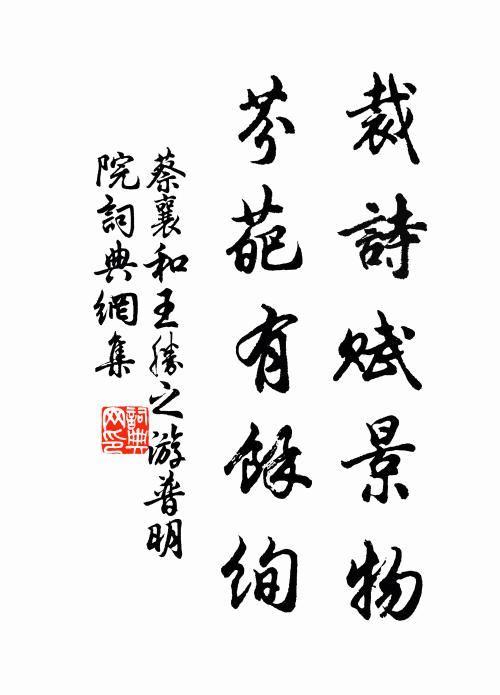 裁詩賦景物
芬葩有餘絢
蔡襄和王勝之游普明
院詞典網集
詞典网印